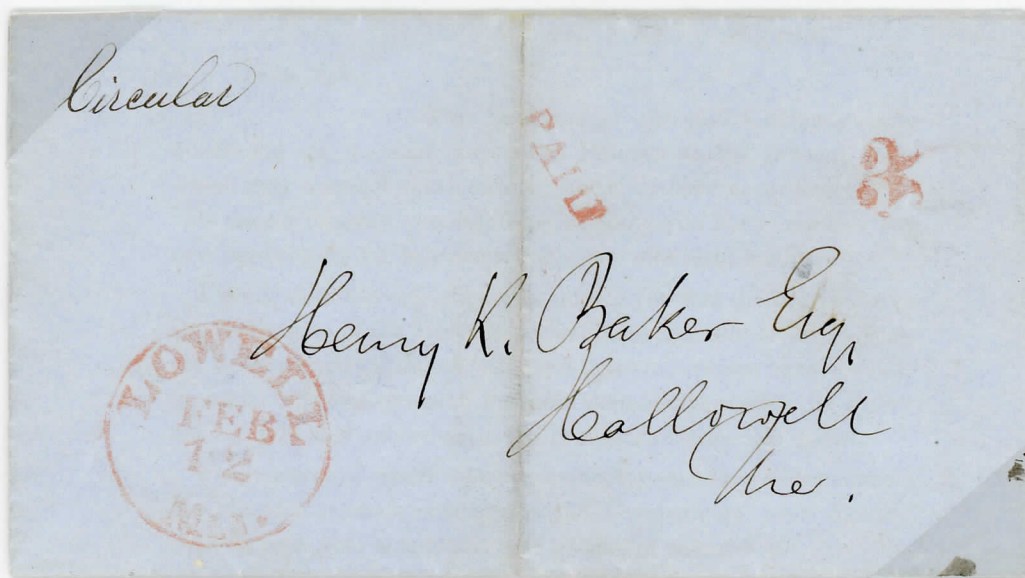 Circular
PAID
2
Henry K. Baker Esq,
Hallowell
Me.
LOWELL
FEB
12
Ms.